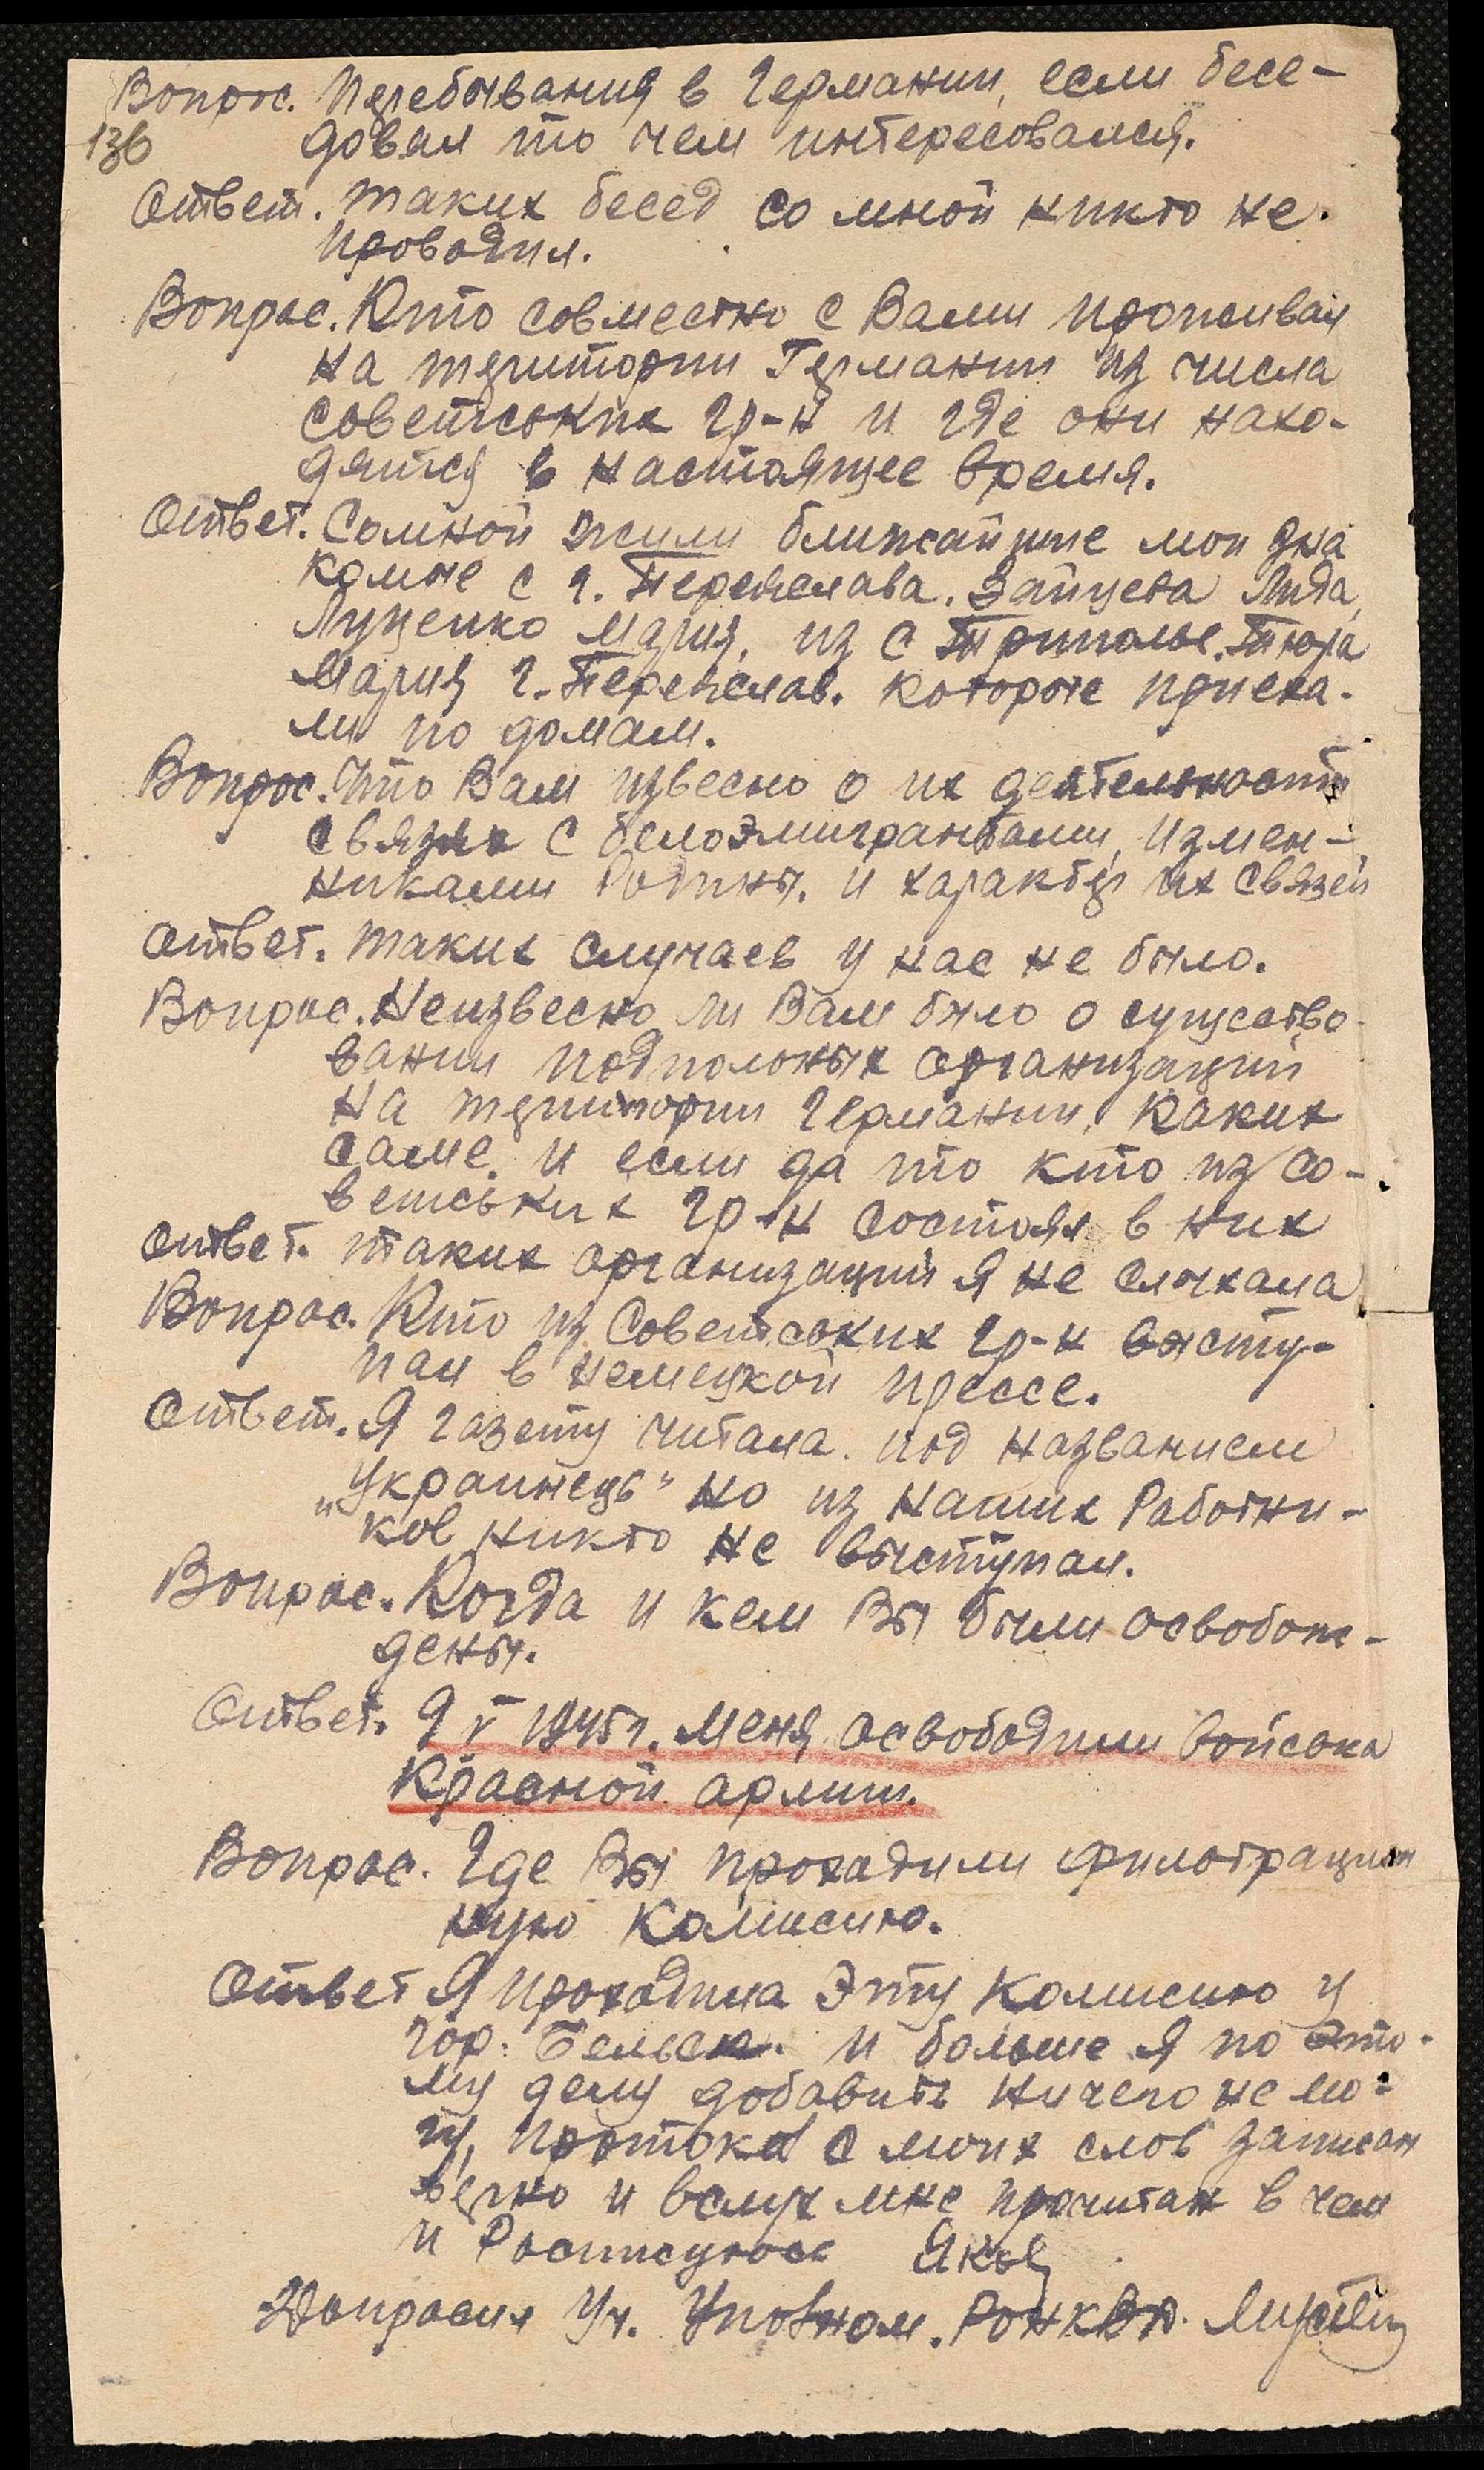 Вопрос. Перебывания в Германии, если бесе-
13б довал то чем интересовался.
Ответ. таких бесед со мной никто не.
проводил.
Вопрос. Кто совместно с Вами проживал
на територии Германии из числа
советських гр-н и где они нахо-
дятся в настоящее время.
Ответ. Сомной жили ближайшие мои зна
комые с г. Переяслава. Зайцева Лида,
Луценко Мария, из с Триполье. Тюра
Мария г. Переяслав. которые приеха-
ли по домам.
Вопрос. Что Вам извесно о их деятельности
связях с белоэмигрантами, измен-
никами Родины. и характер их связей
Ответ. таких случаев у нас не было.
Вопрос. Неизвесно ли Вам было о существо-
вании подпольных организаций
на територии Германии, каких
саме, и если да то кто из со-
ветських гр-н состоял в них
Ответ. таких организаций я не слыхала
Вопрос. Кто из Советських гр-н высту-
пал в немецкой прессе.
Ответ. Я газету читала под названием
„Украинець" но из наших Работни-
ков никто не выступал.
Вопрос. Когда и кем Вы были освобож-
дены.
Ответ. 9 V 1945 г. меня освободили войсока
Красной армии.
Вопрос. Где Вы проходили фильтрацион
ную Комисию.
Ответ Я проходила Эту Комисию у
гор. Бельск. и больше я по Это-
му делу добавить ничего не мо-
гу, протокол с моих слов записан
верно и вслух мне прочитан в чем
и Росписуюсь
Допросил Уч. Уповном. РОНКВД.